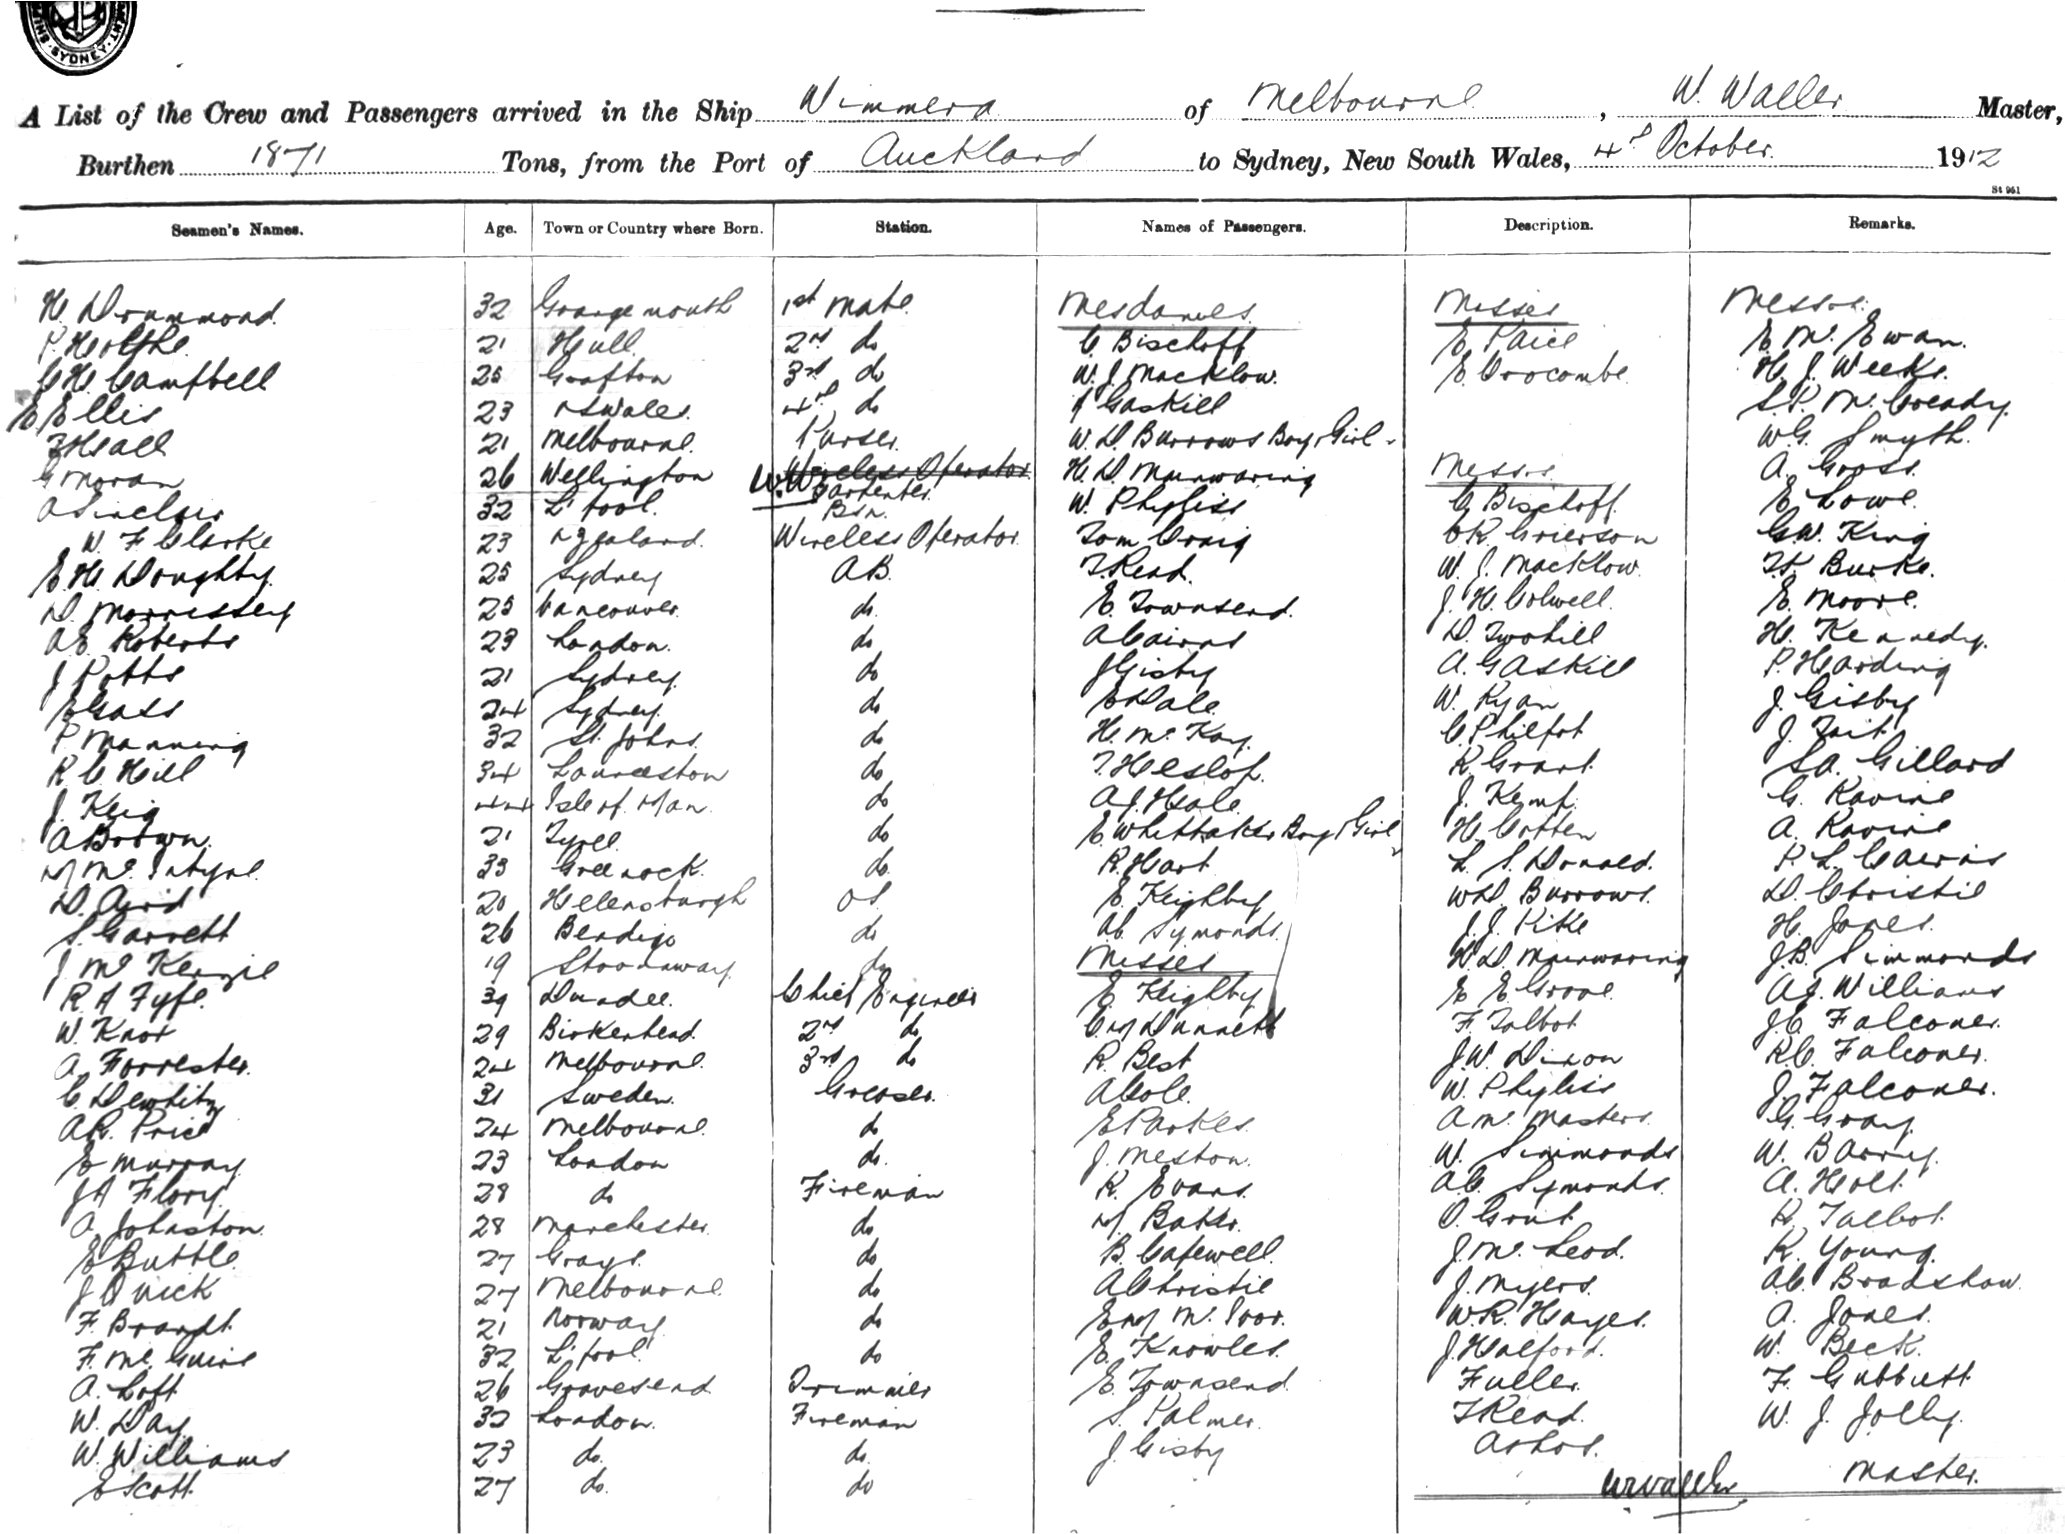 SYDNEY
A List of the Crew and Passengers arrived in the Ship Wimmera of Melbourne, W. Waller Master,
Burthen 1871 Tons, from the Port of Auckland to Sydney, New South Wales, 4th October 1912
St 951
Seamen's Names. Age. Town or Country where Born. Station. Names of Passengers. Description. Remarks.
H. Drummond 32 Grangemouth 1st Mate Mesdames Misses Messrs.
P. Holthe 21 Hull 2nd do C Bischoff E Paice E Mc Ewan.
C H Campbell 25 Grafton 3rd do W. J. Macklow. E. Crocombe H. J. Weeks.
E Ellis 23 NSWales 4th do Gaskill S. P. Mc Cready.
Hall 21 Melbourne Purser W. D Burrows Boy & Girl W G. Smyth
G Moran 26 Wellington Wireless Operator Carpenter H. D Manwaring Messrs A. Gross.
A Sinclair 32 L'pool Bsn. W. Phyliss C Bischoff E Lowe.
W. F Clarke 23 NZealand. Wireless Operator Tom Craig Grierson G W. King
E. H. Doughty. 25 Sydney AB. T. Read. W. J. Macklow. Burke.
D. Morrissey 25 Vancouver. do. E. Townsend. J. H. Colwell. E. Moore.
A E Roberts 23 London. do A Cairns D. Twohill H. Kennedy.
J Potts 21 Sydney do J Gisby A. Gaskill P. Harding
E Gass 24 Sydney. do E Dale W. Ryan J. Gisby
P Manning 32 St. Johns. do H. Mc Kay C Philpot J. Tait
R C Hill 34 Launceston do T. Heslop. R. Grant. S A. Gillard
J. Keig 44 Isle of Man. do A. J. Hale. J. Kemp. G. Ravine
A Brown. 21 Tyrell. do E Whittaker Boy & Girl H Cotten A. Ravine
M Mc Intyre 33 Greenock. do. R. Hart L. S. Donald. P. L. Cairns
D. Aird 20 Helensburgh OS E. Keighby W D. Burrows. D. Christie
S. Garrett 26 Bendigo do A C. Symonds. J. J. Pike H. Jones.
J Mc Kenzie 19 Stornaway. do Misses H. D. Manwaring J. B. Simmonds
R A Fyfe. 39 Dundee. Chief Engineer E Keighby E E Grove A J. Williams
W. Knox 29 Birkenhead. 2nd do C M Dunnett F. Talbot J. C. Falconer.
A. Forrester. 24 Melbourne. 3rd do R Best J. W. Dixon R. C. Falconer.
C. 31 Sweden. Greaser. A Cole. W. Phyliss J. Falconer.
A R. Price 24 Melbourne do E Parkes. A Mc Masters G. Gray.
E Murray 23 London do. J. Meston. W. Simmonds W. Barry.
J A Flory. 28 do Fireman R. Evans. A C Symonds. A. Holt
A. Johnston 28 Manchester do M. Bates. O. Grut R. Talbot.
E Buttle 27 Grays. do B. Capewell. J. Mc Leod. R. Young.
J Quick 27 Melbourne do A Christie J. Myers. A C. Bradshaw.
F. Brandt. 21 Norway do E M Mc Ivor. W. R. Hayes. A. Jones.
F. Mc Guire 32 L'pool. do E. Knowles. J. Halford. W. Beck.
A. Loft 26 Gravesend Trimmer E. Townsend Fuller. F. Gubbutt
W. Day. 32 London. Fireman S. Palmer. T Read. W. J. Jolly.
W. Williams 23 do. do. J. Gisby
E Scott 27 do. do W Waller Master.